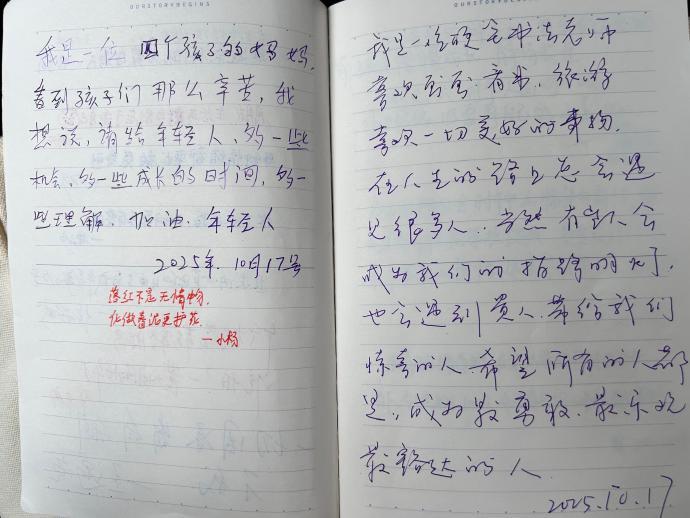 OURSTORYBEGINS
我是一位 四个孩子的妈妈,
看到孩子们那么辛苦,我
想说,请给年轻人、多一些
机会,多一些成长的时间,多一
些理解. 加油. 年轻人
2025年. 10月17号
落红不是无情物,
化做春泥更护花.
—小杨
我是一位硬笔书法老师
喜欢画画、看书、旅游
喜欢一切美好的事物.
在人生的路上总会遇
见很多人. 当然有些人会
成为我们的指路明灯.
也会遇到贵人、带给我们
惊喜的人 希望所有的人都
是,成为最勇敢、最乐观
最豁达的人
2025.10.17